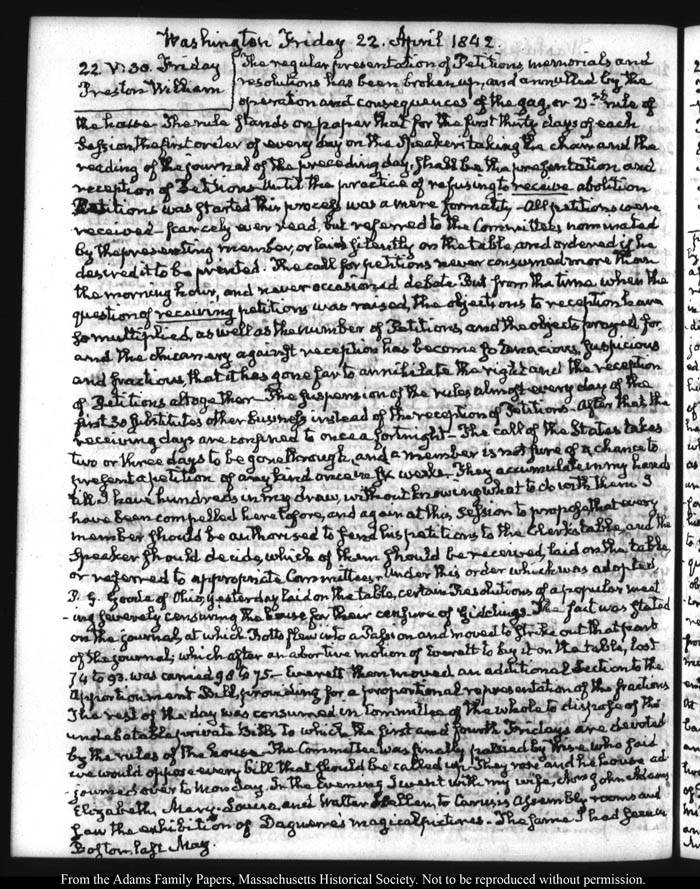 Washington Friday 22. April 1842.
22 V:30. Friday
Preston William
The regular presentation of Petitions, memorials and
resolutions has been broken up, and annulled by the
operation and consequences of the gag, or 21st rule of
the house. The rule stands on paper that for the first thirty days of each
Session, the first order of every day on the Speaker's taking the chair and the
reading of the journal of the preceding day, shall be the presentation and
reception of Petitions. Until the practice of refusing to receive abolition
Petitions was started this process was a mere formality. All petitions were
received - scarcely ever read, but referred to the Committees nominated
by the presenting member, or laid silently on the table, and ordered if he
desired it to be printed. The call for petitions never consumed more than
the morning hour, and never occasioned debate. But from the time when the
question of receiving petitions was raised, the objections to reception have
so multiplied, as well as the number of Petitions, and the objects prayed for
and the chicanery against reception has become so tenacious, suspicious
and fractious, that it has gone far to annihilate the right and the reception
of Petitions altogether - The suspension of the rules almost every day of the
first 30 substitutes other business instead of the reception of Petitions - After that the
receiving days are confined to once a fortnight - The call of the States takes
two or three days to be gone through, and a member is not sure of a chance to
present a petition of any kind once in six weeks. They accumulate in my hands
till I have hundreds in my draw, without knowing what to do with them I
have been compelled heretofore, and again at this session to propose that every
member should be authorised to send his petitions to the Clerk's table, and the
Speaker should decide, which of them should be received, laid on the table,
or referred to appropriate Committees. Under this order which was adopted
P. G. Goode of Ohio, yesterday laid on the table, certain Resolutions of a popular meet
-ing severely censuring the house for their censure of Giddings. The fact was stated
on the journal, at which Botts flew into a Passion and moved to strike out that part
of the journal; which after an abortive motion of Everett to lay it on the table, lost
74 to 93. was carried 98 to 75. - Everett then moved an additional Section to the
Apportionment Bill, providing for a proportional representation of the fractions
The rest of the day was consumed in Committee of the whole to dispose of the
undebatable private Bills to which the first and fourth Fridays are devoted
by the rules of the house. The Committee was finally palsied by three who said
we would oppose every bill that should be called up. They rose and the house ad
-journed over to Monday. In the Evening I went with my wife, Mrs John Adams,
Elizabeth, Mary-Louisa, and Walter Hellen, to Carusi's Assembly rooms and
saw the exhibition of Daguerre's magical pictures. The same I had seen in
Boston last May.
From the Adams Family Papers, Massachusetts Historical Society. Not to be reproduced without permission.